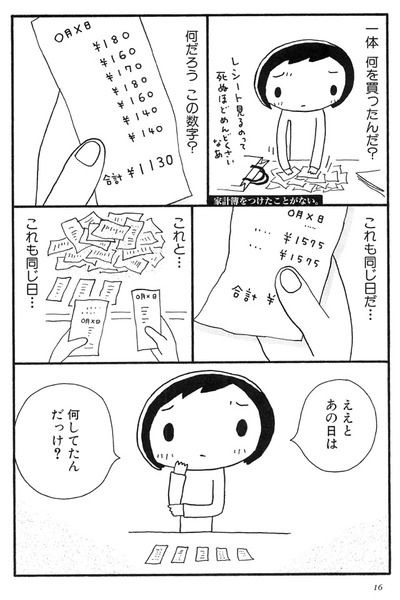 一体 何を買ったんだ？
レシート見るのって
死ぬほどめんどくさい
なあ
家計簿をつけたことがない。
何だろう この数字？
〇月×日
¥180
¥160
¥170
¥180
¥160
¥140
¥140
合計 ¥1130
これも同じ日だ…
〇月×日
¥1575
¥1575
合計 ¥
これと…
これも同じ日…
〇月×日
〇月×日
ええと
あの日は
何してたん
だっけ？
16